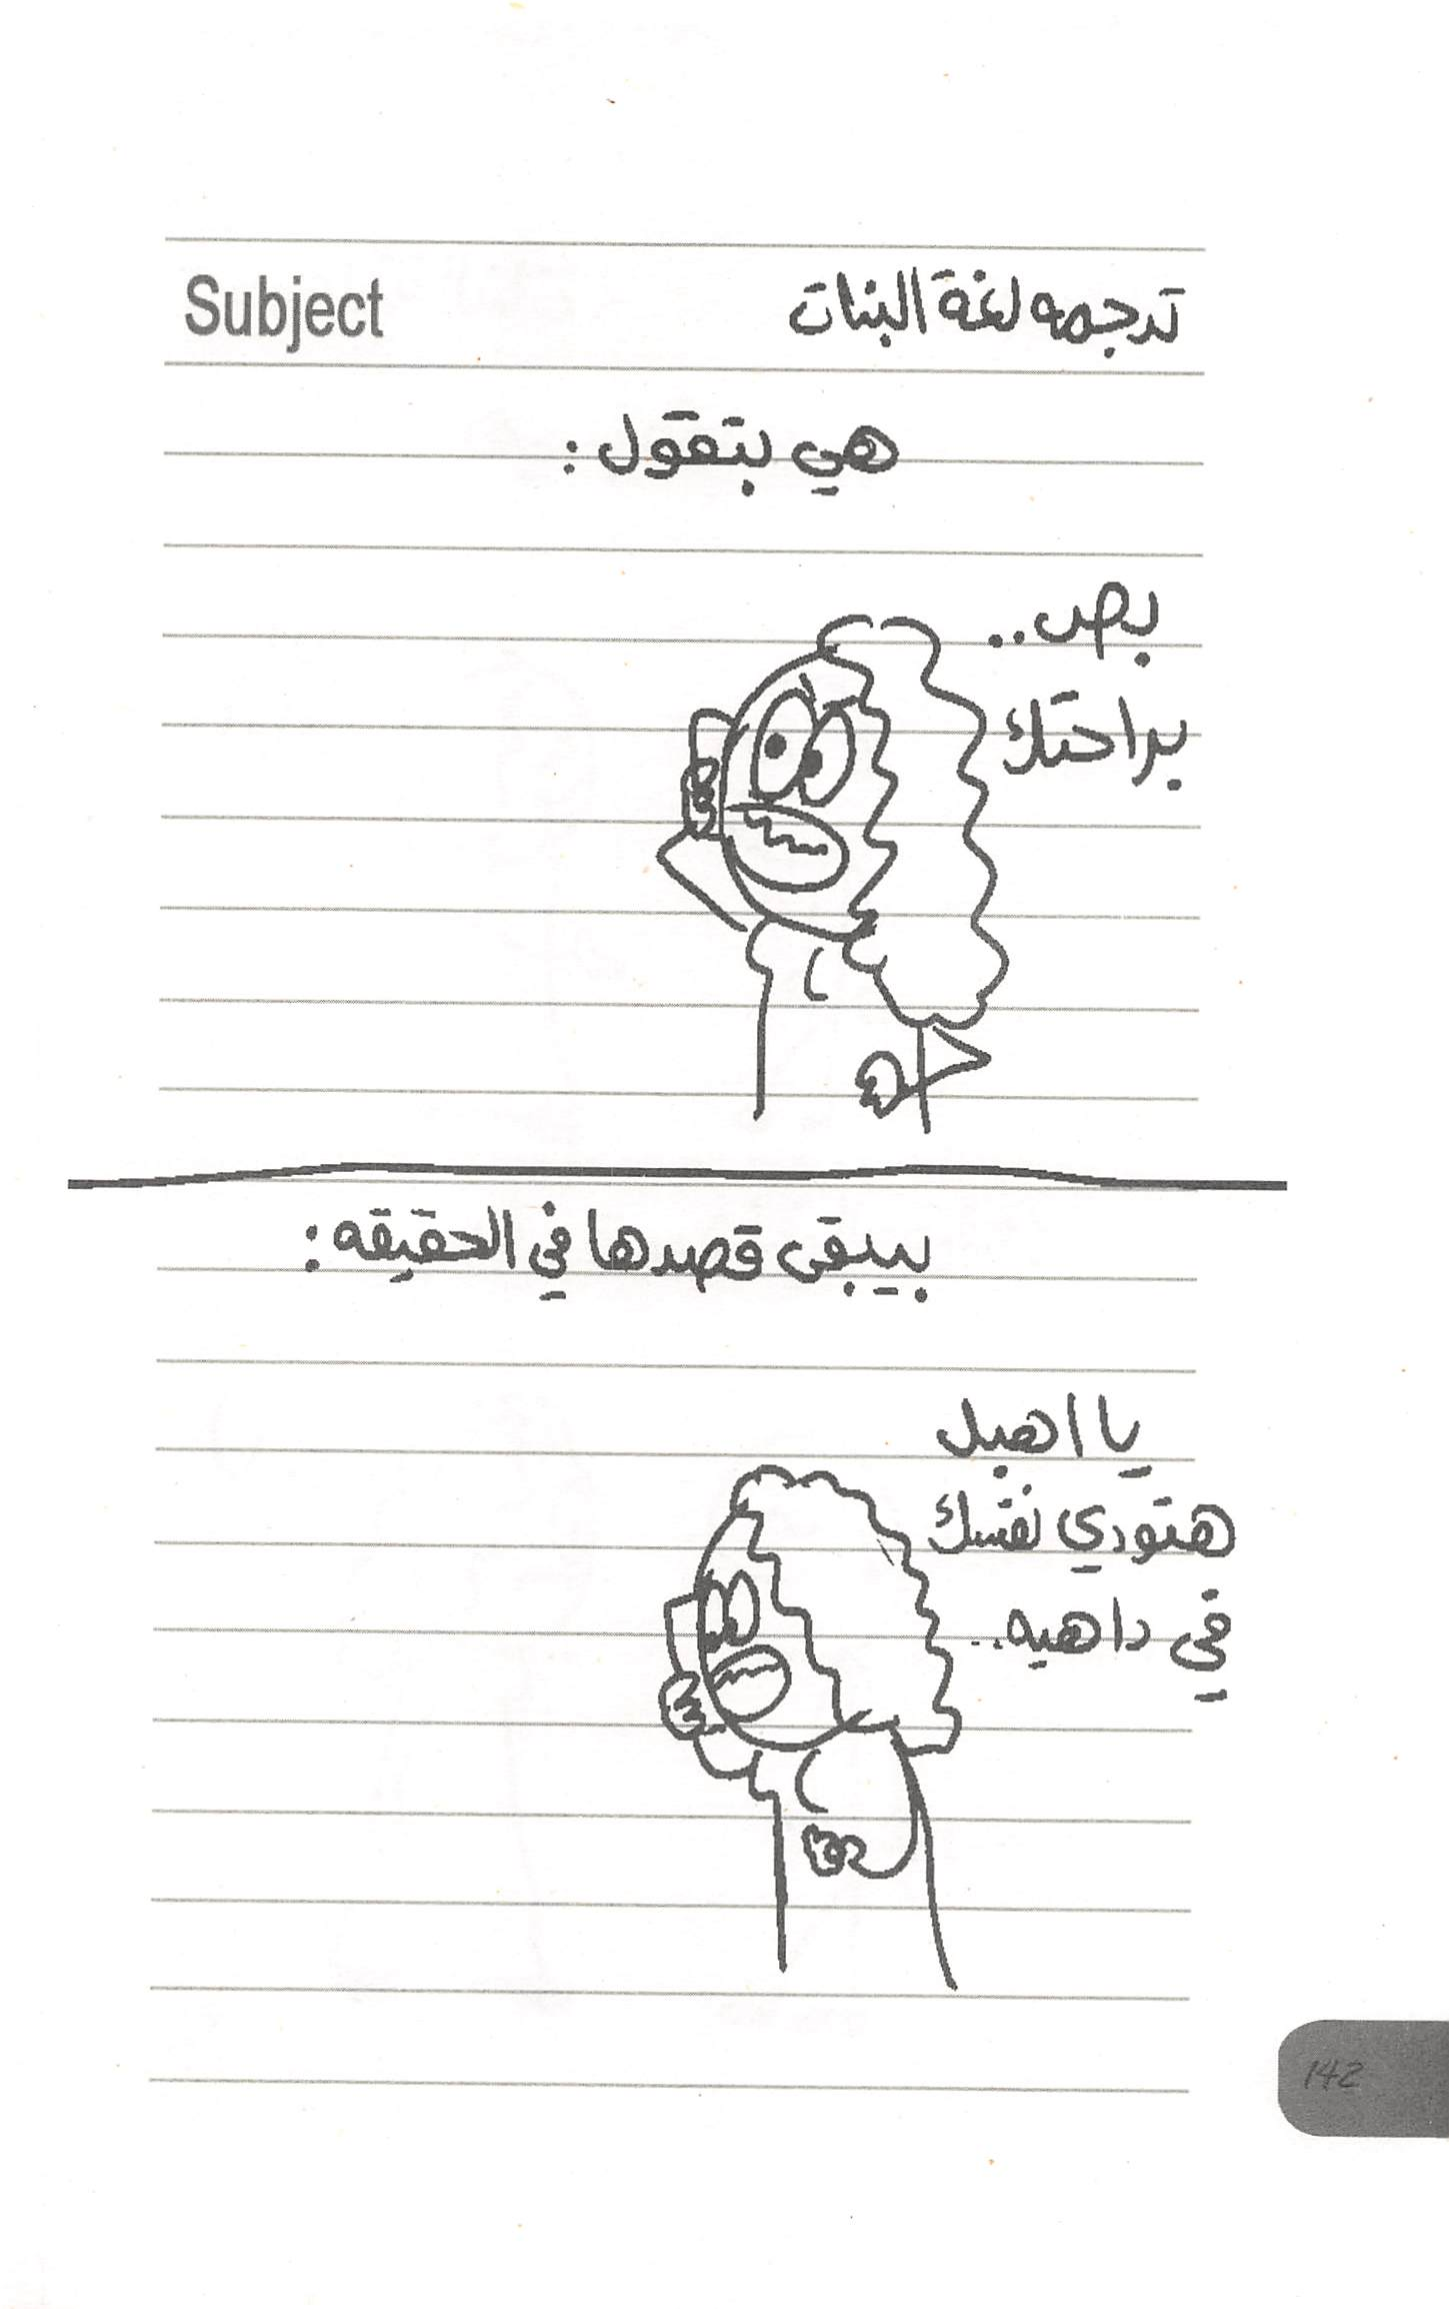 Subject
ترجمه لغة البنات
هي بتقول:
بص..
براحتك
بيبقى قصدها في الحقيقه:
يا اهبل
هتودي نفسك
في داهيه..
142